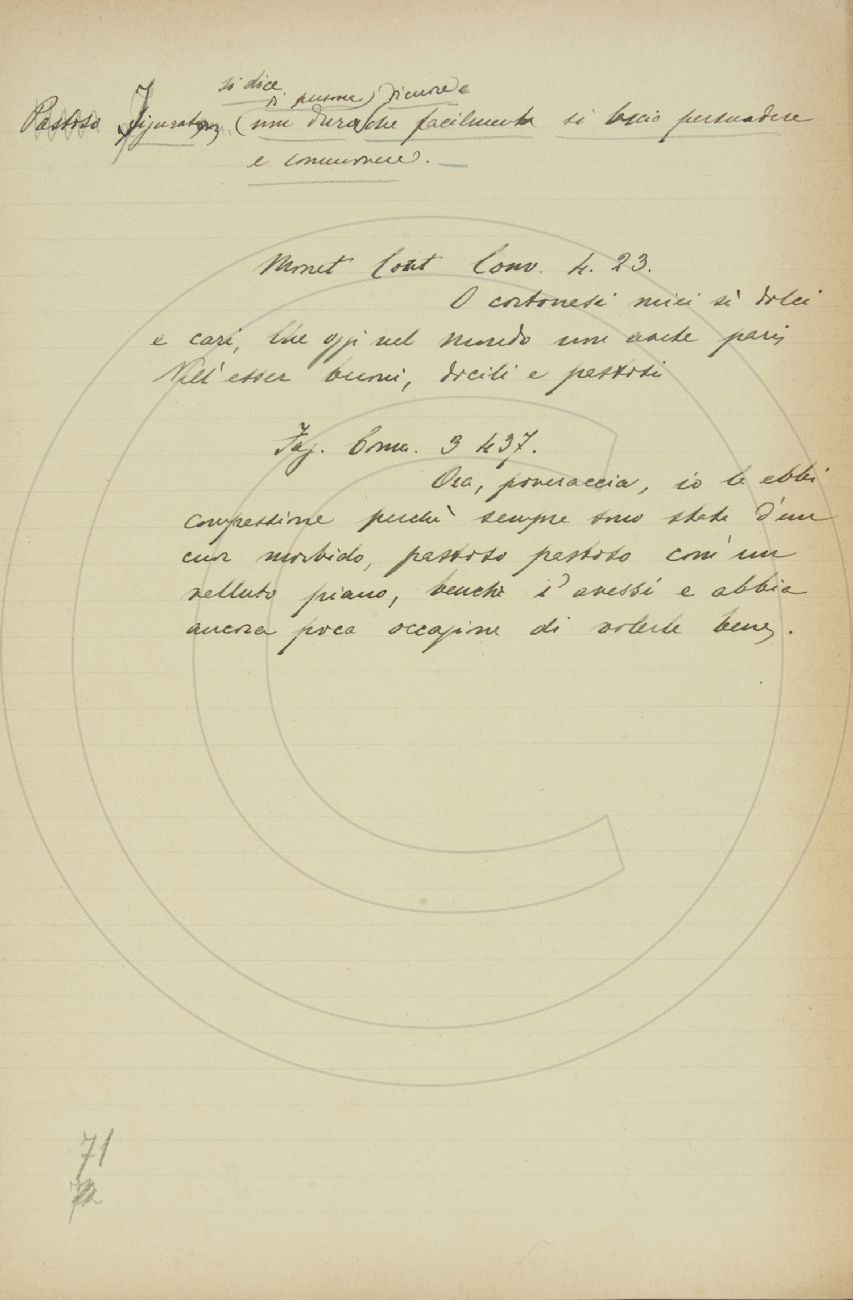 si dice
di persona, di cuore e
Pastoso Figurato, (non dura, che facilmente si lascia persuadere
e commuovere). —
Monet Cort Conv. 4. 23.
O cortonesi miei sì dolci
e cari, Che oggi nel mondo non avete pari,
Nell'esser buoni, docili e pastosi
Fag. Com. 3 437.
Ora, poveraccia, io le ebbi
compassione perchè sempre sono stata d'un
cuor morbido, pastoso pastoso com'un
velluto piano, benchè i' avessi e abbia
ancora poca occasione di volerle bene.
71